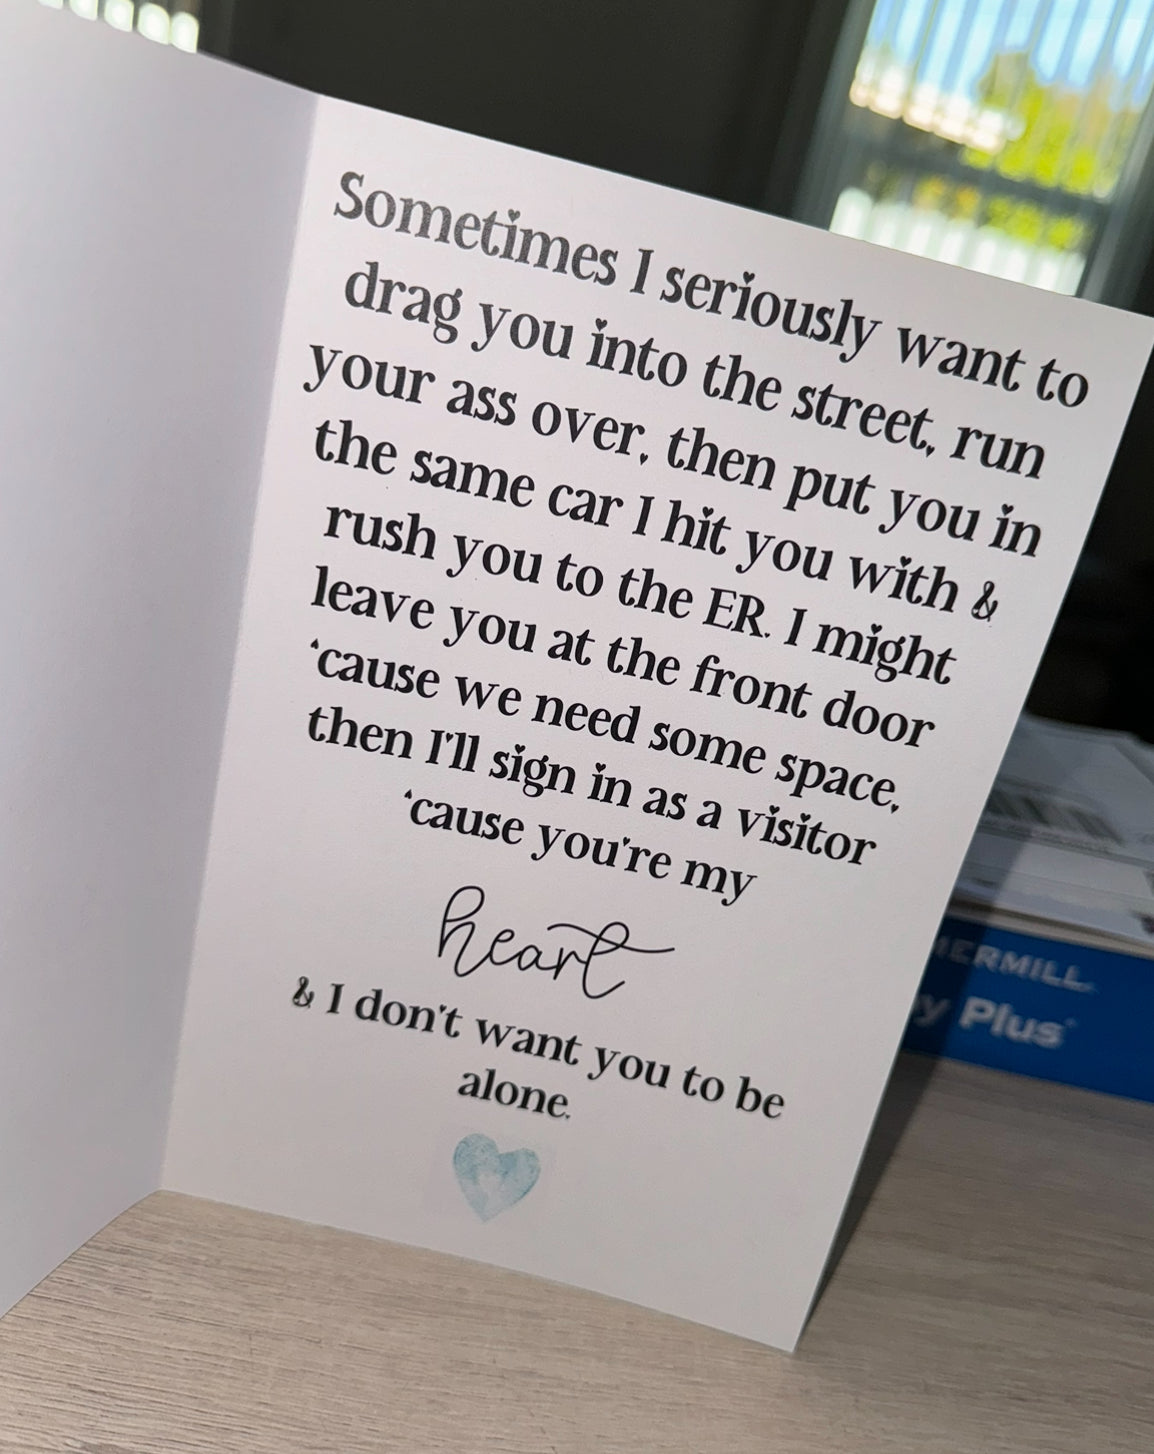 Sometimes I seriously want to
drag you into the street, run
your ass over, then put you in
the same car I hit you with &
rush you to the ER. I might
leave you at the front door
'cause we need some space,
then I'll sign in as a visitor
'cause you're my
heart
& I don't want you to be
alone.
ERMILL
y Plus